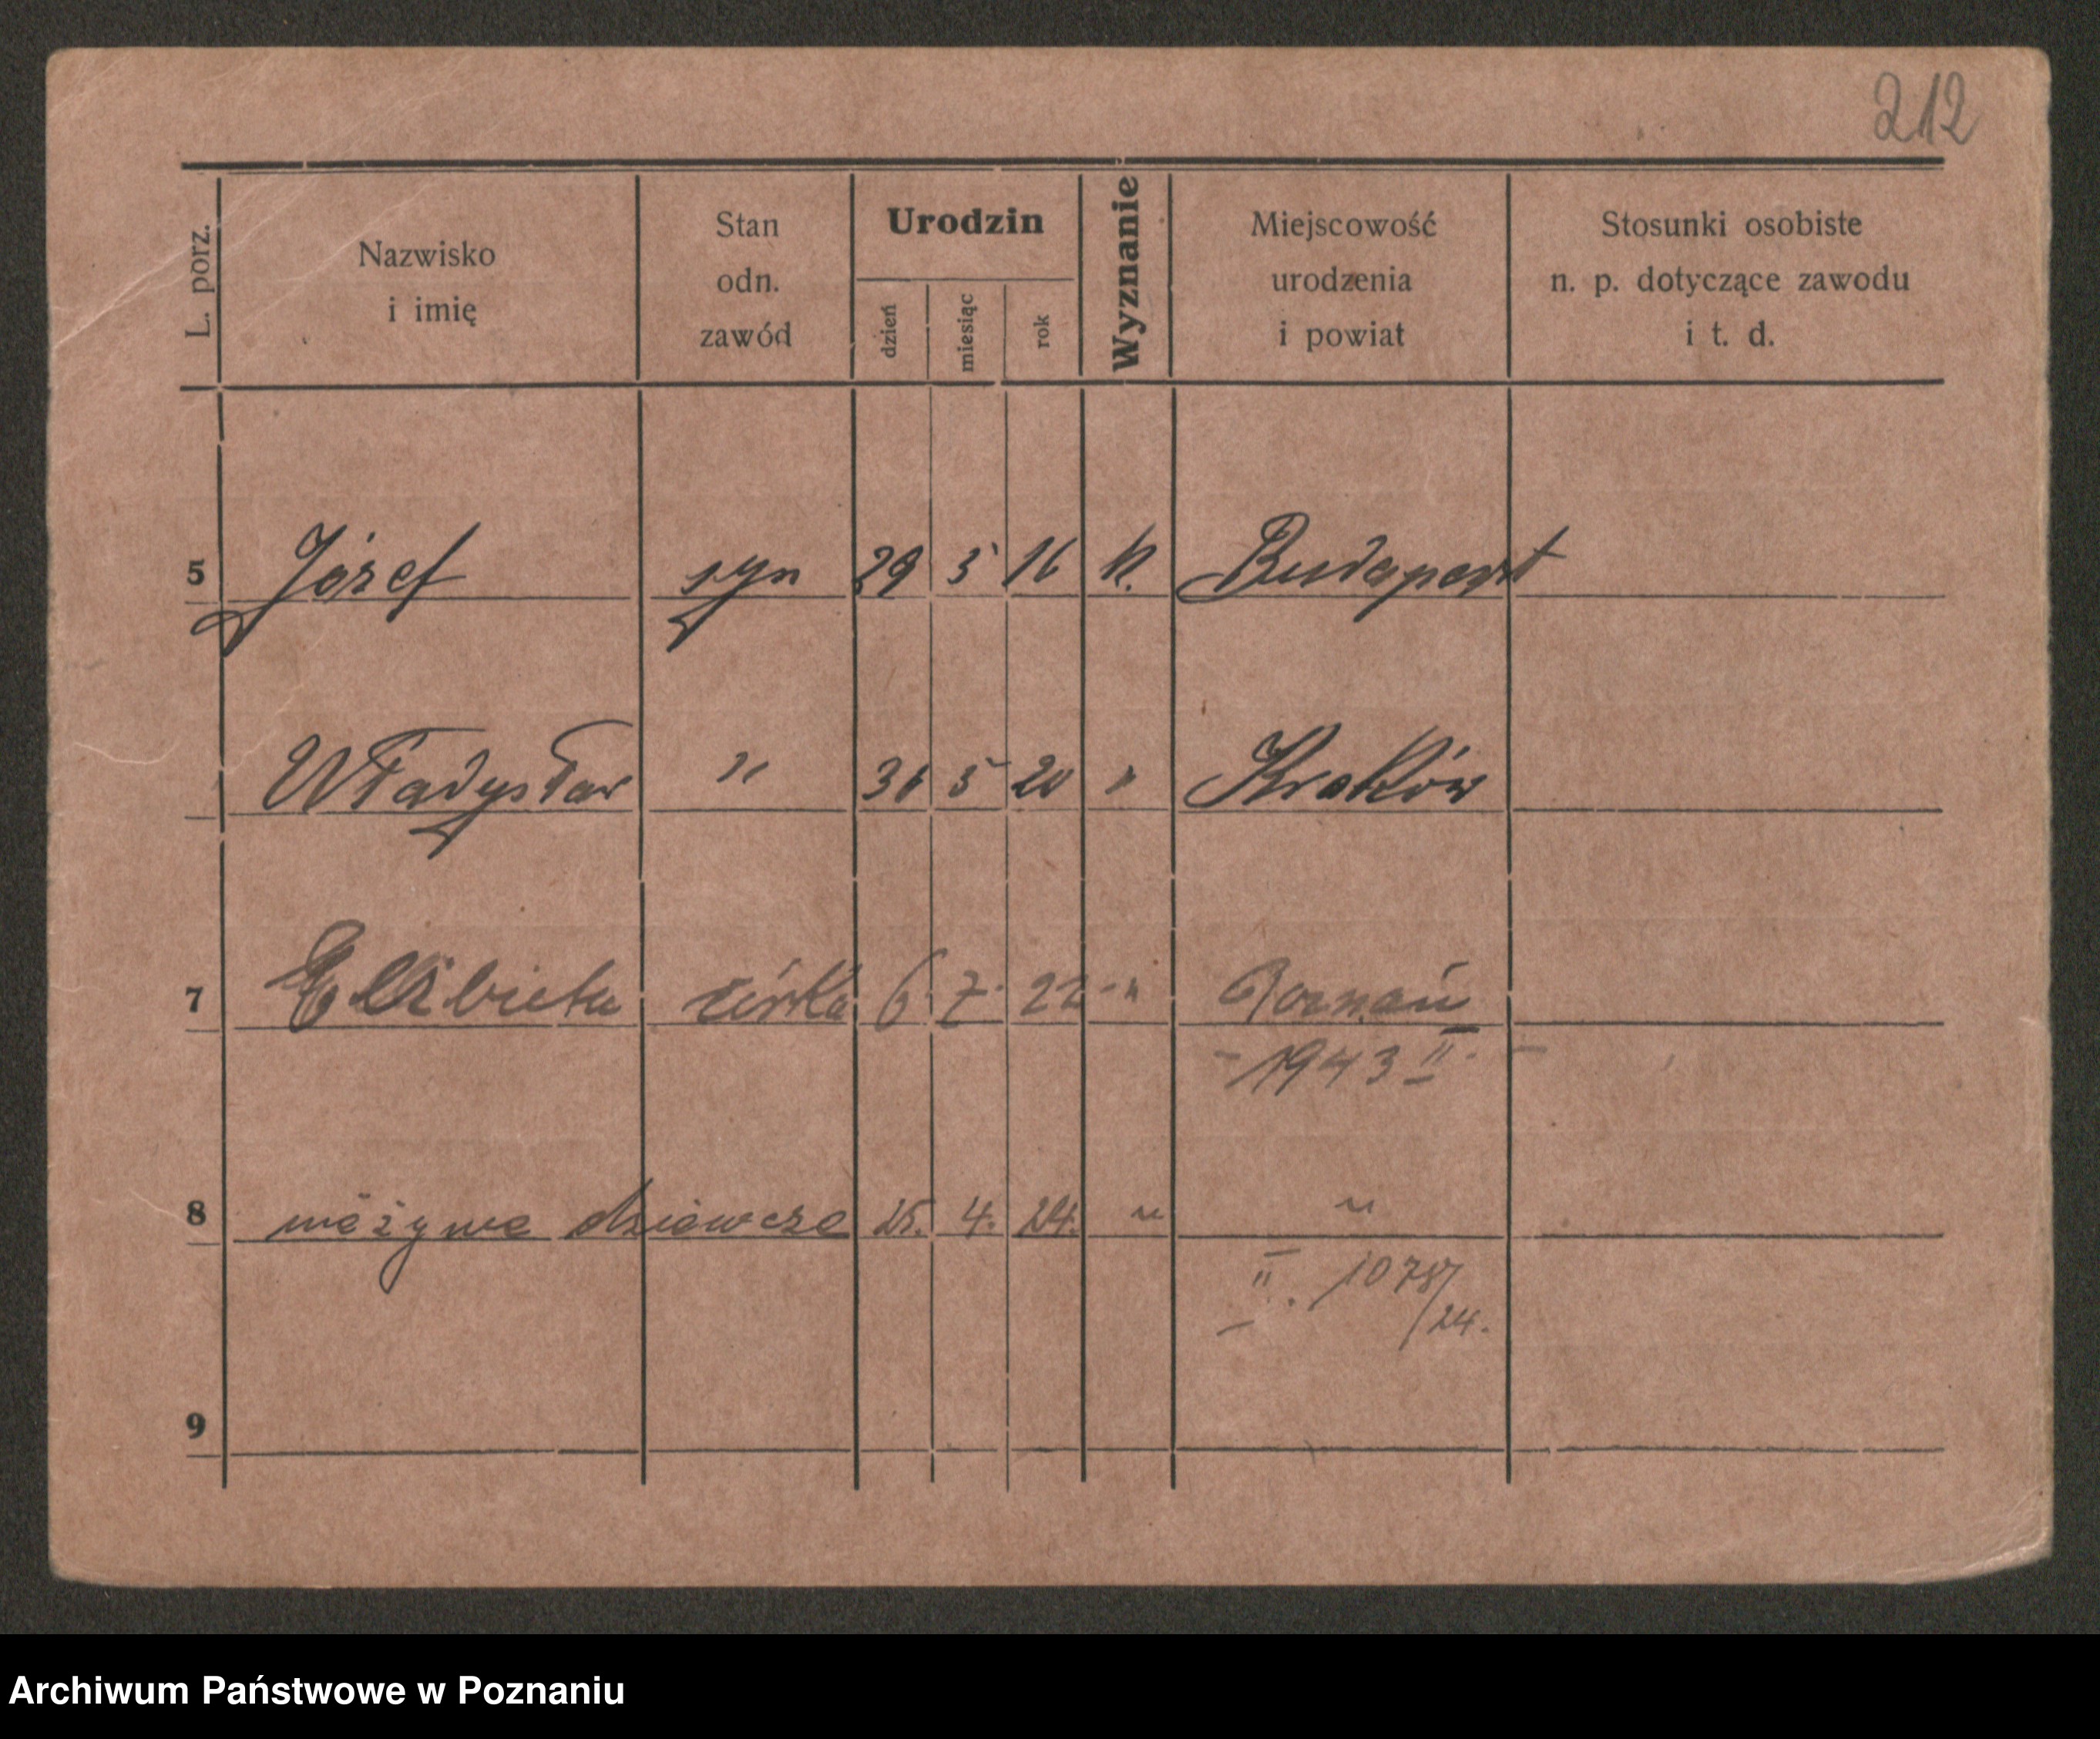 212
L. porz.
Nazwisko
i imię
Stan
odn.
zawód
Urodzin
dzień
miesiąc
rok
Wyznanie
Miejscowość
urodzenia
i powiat
Stosunki osobiste
n. p. dotyczące zawodu
i t. d.
5 Józef syn 29 5 16 k. Budapest
Władysław " 31 5 20 " Kraków
7 Elżbieta córka 6. 7. 22 - " Poznań
- 1943 II. -
8 nieżywe dziewcze 25. 4. 24. " "
II. 1078/24.
9
Archiwum Państwowe w Poznaniu